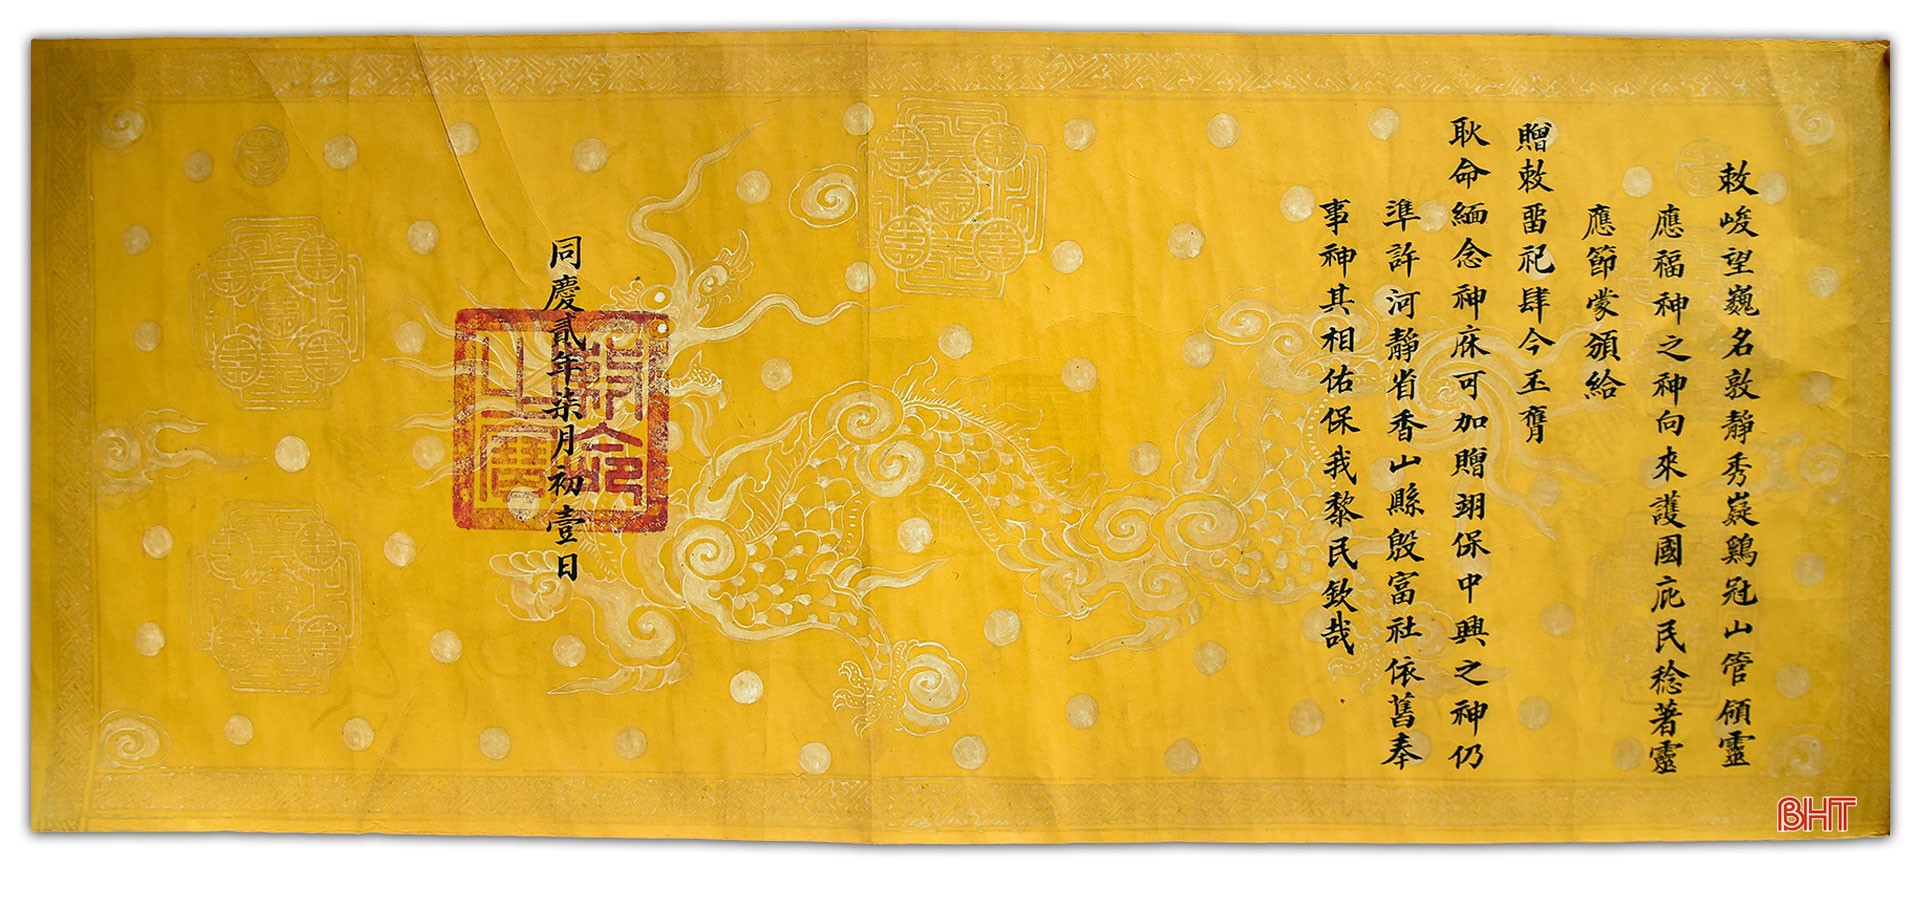 敕峻望巍名敦靜秀嶷鷄冠山管領靈
應福神之神向來護國庇民稔著靈
應節蒙頒給
贈敕畱祀肆今丕膺
耿命緬念神庥可加贈翊保中興之神仍
準許河靜省香山縣殷富社依舊奉
事神其相佑保我黎民欽哉
同慶貳年柒月初壹日
敕命之寶
BHT